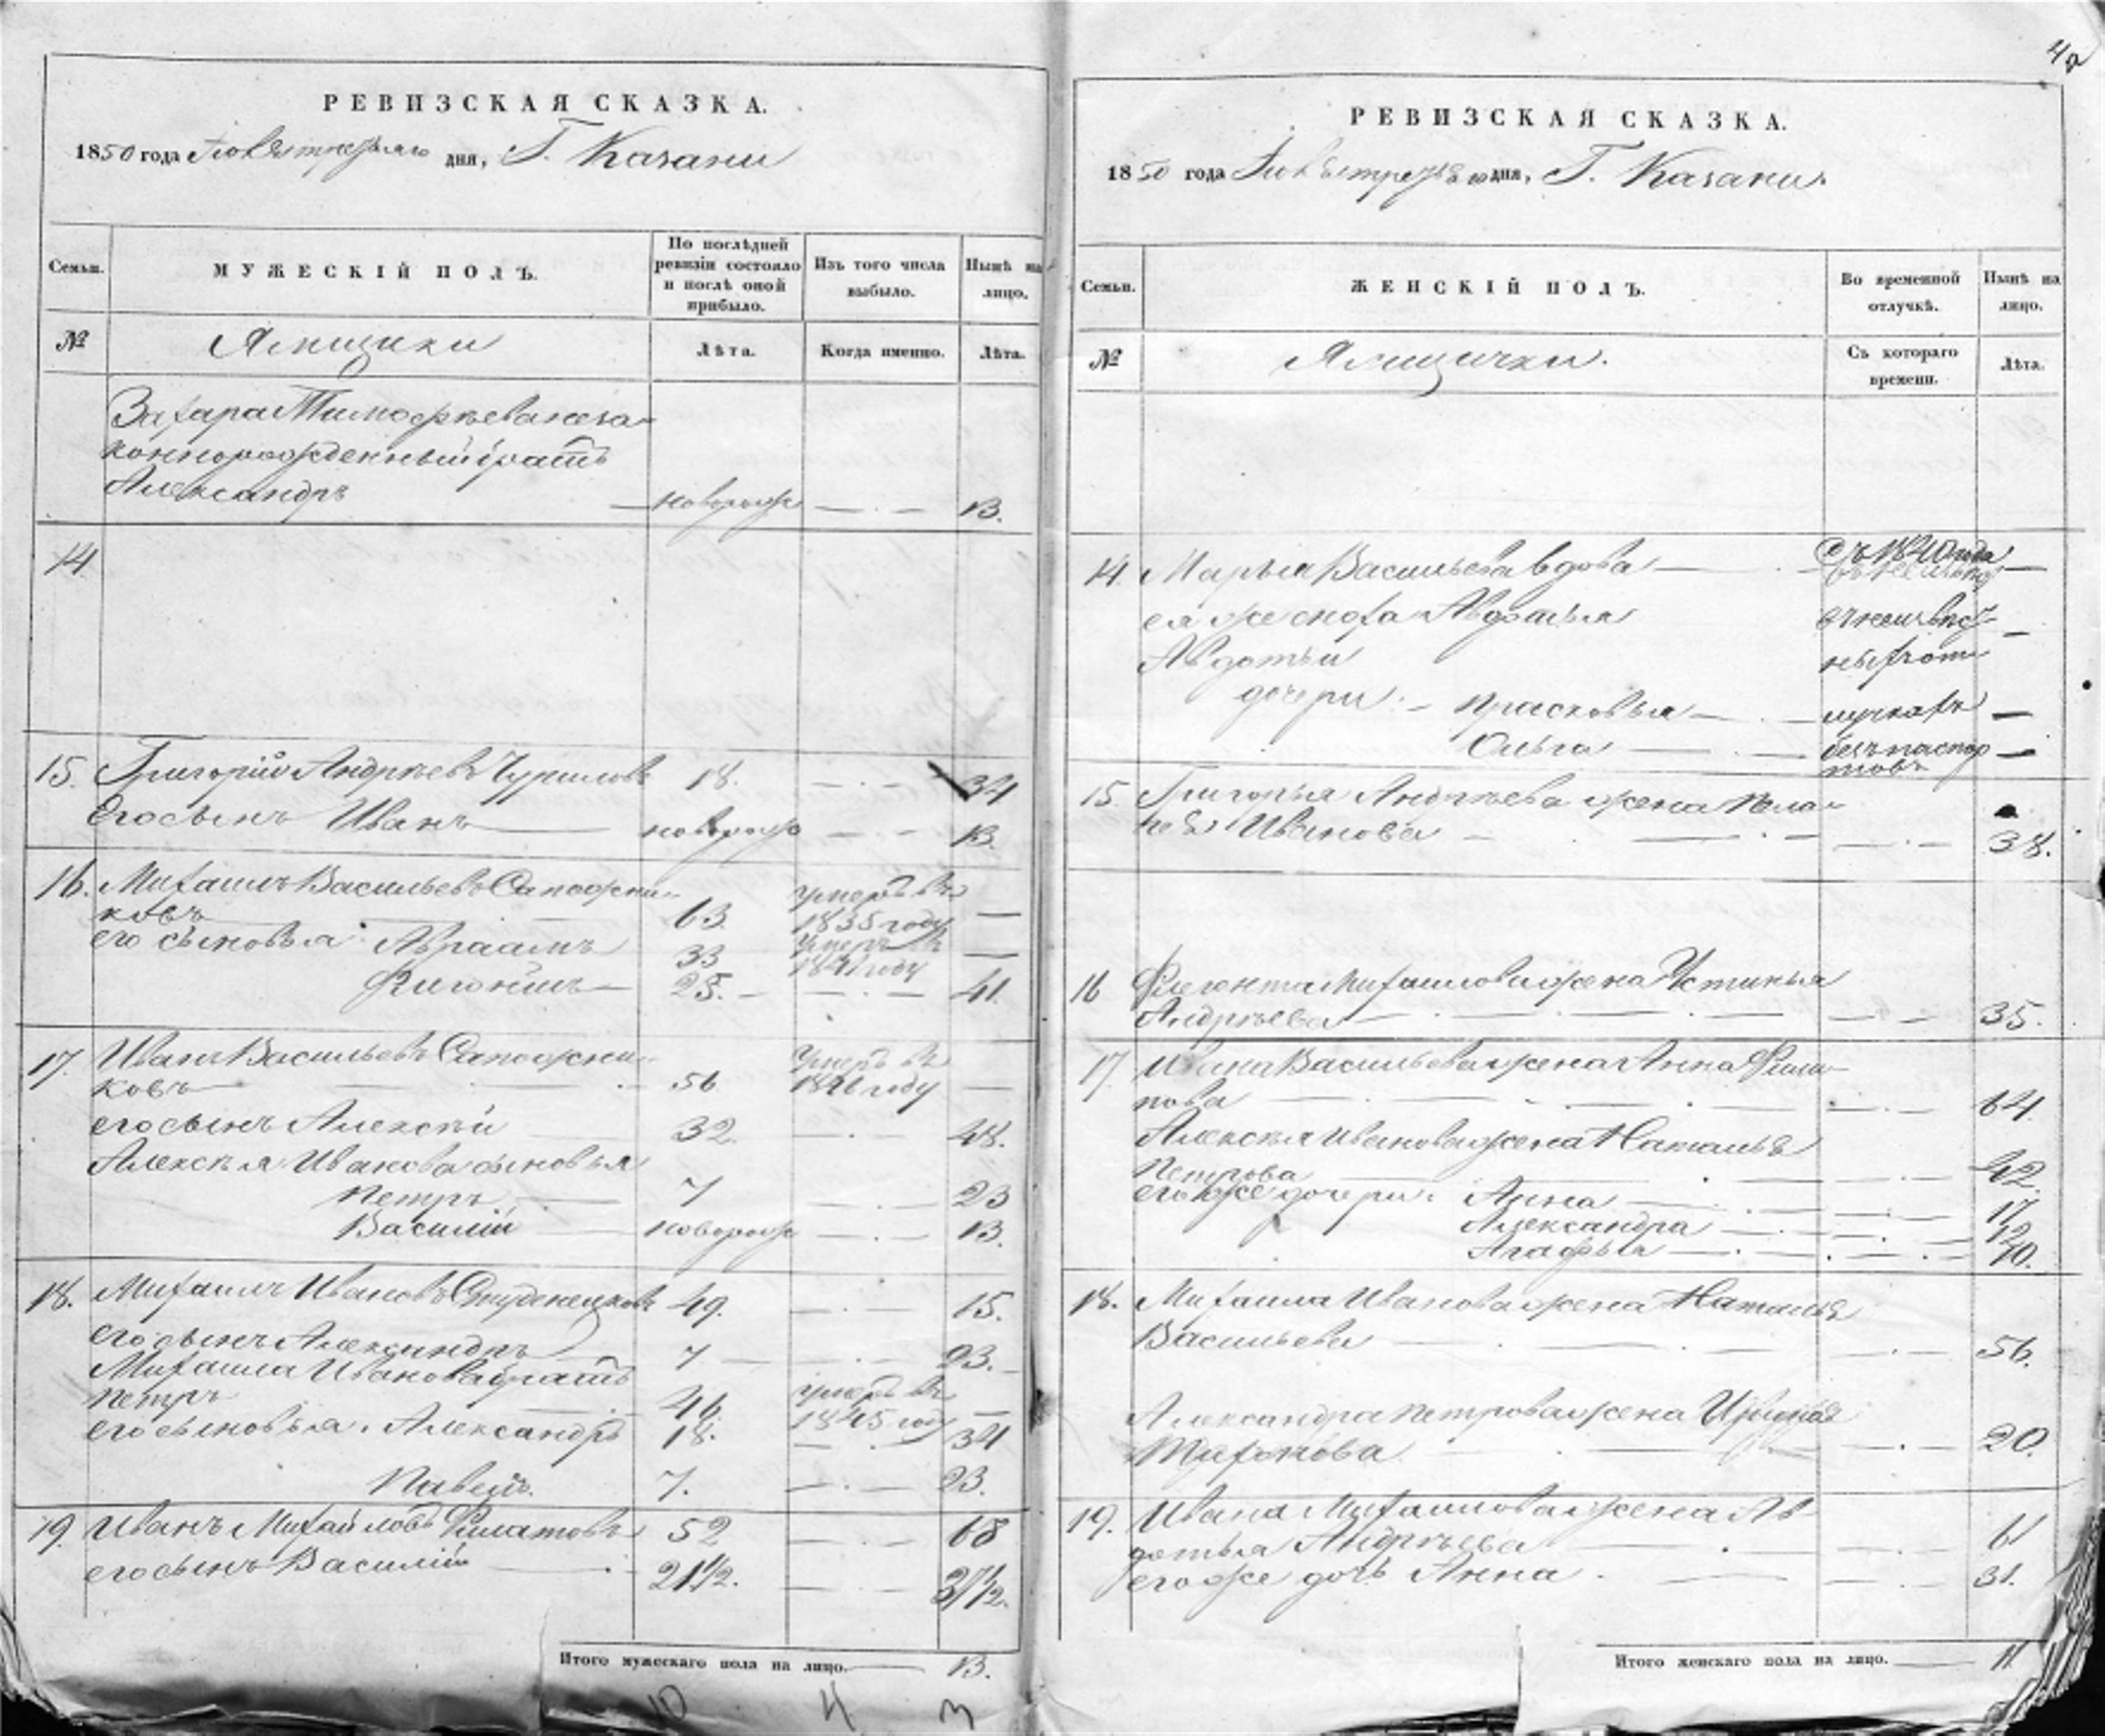 42
РЕВИЗСКАЯ СКАЗКА.
1850 года дня, Г. Казани
Семьи.
МУЖЕСКІЙ ПОЛЪ.
По послѣдней ревизіи состояло и послѣ оной прибыло.
Изъ того числа выбыло.
Нынѣ на лицо.
№
Ямщики
Лѣта.
Когда именно.
Лѣта.
Захара Тимофѣева неза-
коннорожденный братъ
Александръ — новорож — . — 13.
14
15. Григорій Андрѣевъ Чурилов 18. — . — 34
Его сынъ Иванъ — новорож — . — 13.
16. Михаилъ Васильевъ Сапожни-
ковъ 63. умеръ въ 1835 году —
его сыновья Авраамъ 33 умеръ въ 1841 году —
25. — — . — 41.
17. Иванъ Васильевъ Сапожни-
ковъ — 56 умеръ въ 1846 году —
его сынъ Алексѣй 32. — . — 48.
Алексѣя Иванова сыновья
Петръ — 7 — . — 23
Василій — новорож — . — 13.
18. Михаилъ Ивановъ 49. — . — 15.
его сынъ Александръ 7 — — . — 23. —
Михаила Иванова братъ
Петръ 46 умеръ въ 1845 году —
его сыновья. Александръ 18. — . — 34
Павелъ. 7. — . — 23.
19. Иванъ Михайловъ Филатовъ 52 — . — 68
его сынъ Василій — . 21 1/2. — . — 37 1/2.
Итого мужескаго пола на лицо. — 13.
10 4 3
РЕВИЗСКАЯ СКАЗКА.
1850 года дня, Г. Казани.
Семьи.
ЖЕНСКІЙ ПОЛЪ.
Во временной отлучкѣ.
Нынѣ на лицо.
№
Ямщички.
Съ котораго времени.
Лѣта.
14. Марья Васильева вдова — . — съ 1840 года —
ея же сноха Авдотья
Авдотьи
дочери. — Прасковья — . —
Ольга — . — безъ паспор-
товъ —
15. Григорья Андрѣева жена Пела-
гея Иванова — . — . — 38.
16 Михаилова жена Устинья
Андрѣева — . — . — 35.
17. Ивана Васильева жена Анна Фили-
пова — . — . — 64.
Алексѣя Иванова жена Наталья
Петрова — . — 42
его же дочери: Анна — . — 17.
Александра — . — 12
Агафья — . — 10.
18. Михаила Иванова жена Наталья
Васильева — . — . — 56.
Александра Петрова жена
— . — 20.
19. Ивана Михаилова жена Ав-
дотья Андрѣева . — . — 61
его же дочь Анна . — . — 31.
Итого женскаго пола на лицо. — 11.